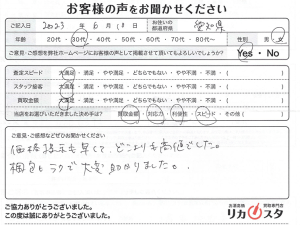 お客様の声をお聞かせください
ご記入日 2023 年 6 月 18 日 お住いの都道府県 愛知県
年齢 20代・30代・40代・50代・60代・70代・80代〜 性別 男・女
ご意見・ご感想を弊社ホームページにお客様の声として掲載させて頂いてもよろしいでしょうか? Yes・No
査定スピード 大満足・満足・やや満足・どちらでもない・やや不満・不満・( )
スタッフ接客 大満足・満足・やや満足・どちらでもない・やや不満・不満・( )
買取金額 大満足・満足・やや満足・どちらでもない・やや不満・不満・( )
当店をお選びいただきました決め手は? 買取金額・対応力・利便性・スピード・その他( )
ご意見・ご感想などぜひお聞かせください
価格提示も早くて、どこよりも高値でした。
梱包もラクで大変助かりました。
ご協力ありがとうございました。
この度は誠にありがとうございました。
お酒買取 買取専門店
リカスタ